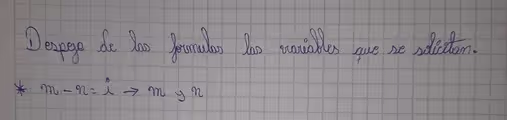 Despeja de las formulas las variables que se solicitan.
* m - n = i → m y n